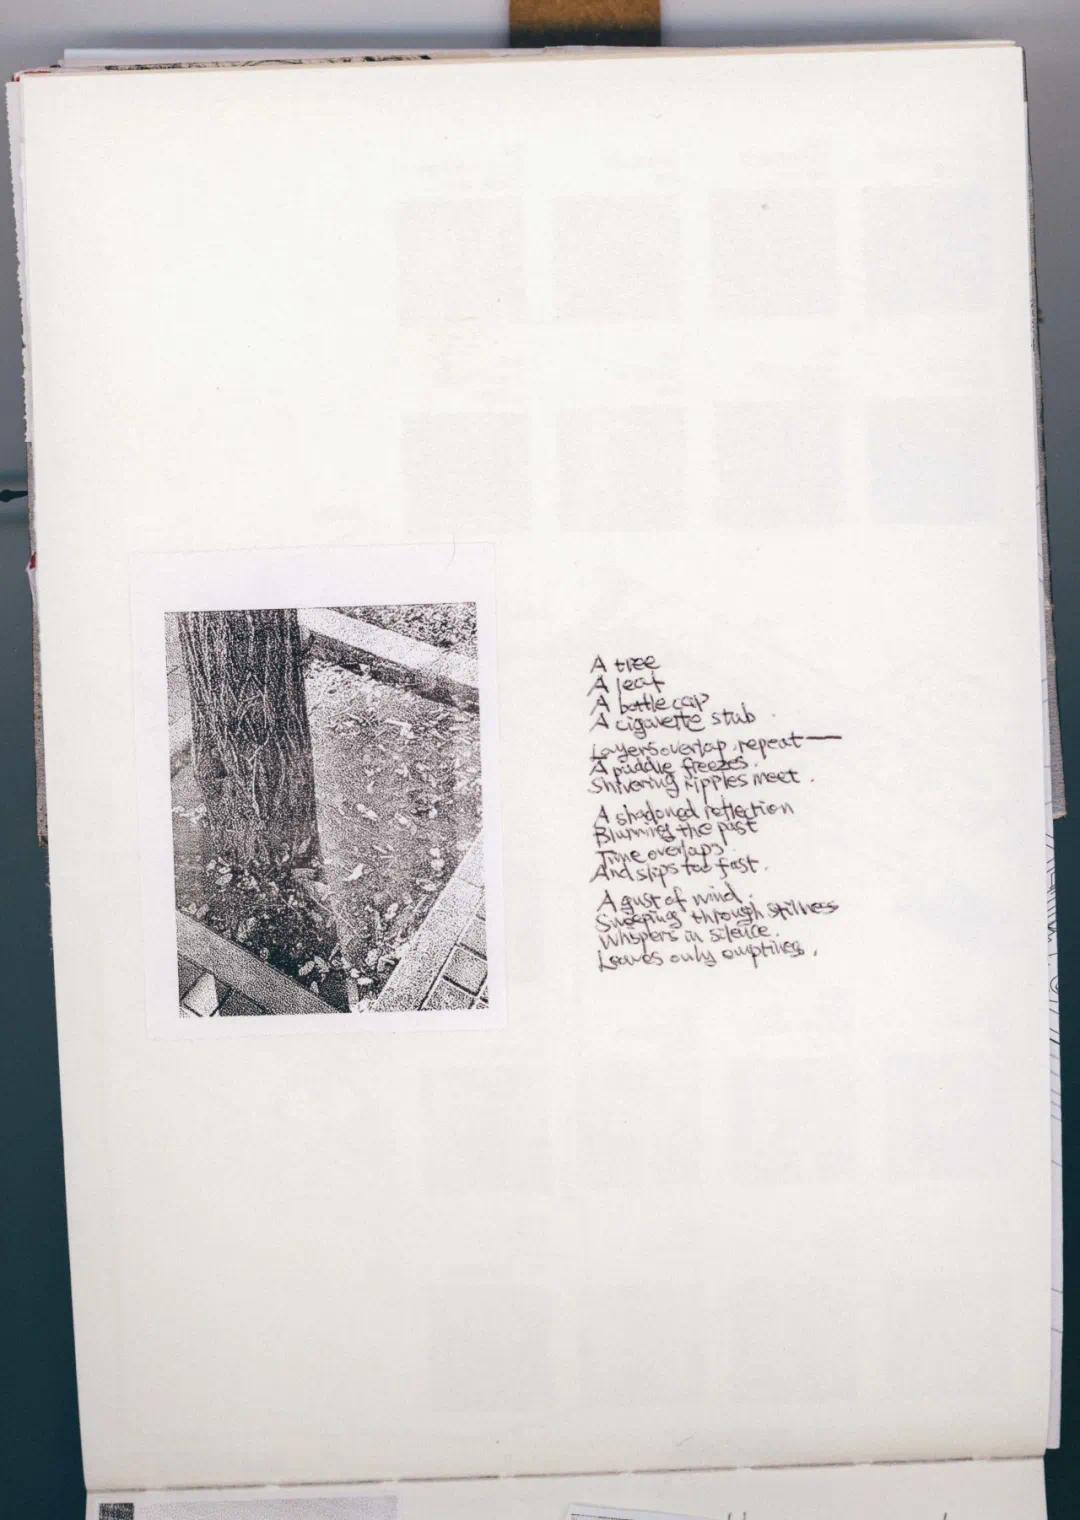 A tree
A leaf
A bottle cap
A cigarette stub.
Layers overlap, repeat—
A puddle freezes.
Shivering ripples meet.
A shadoned reflection
Blurring the past
Time overlaps.
And slips too fast.
A gust of wind.
Sweeping through stillness
Whispers in silence.
Leaves only emptiness.